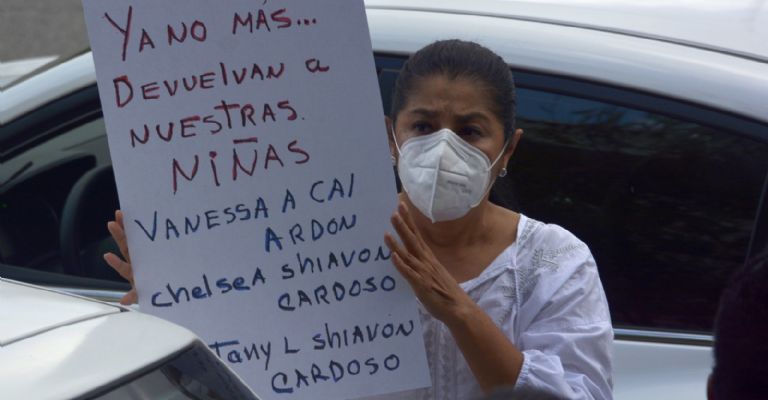 YA NO MÁS...
DEVUELVAN A
NUESTRAS.
NIÑAS
VANESSA A CAI
ARDON
CHELSEA SHIAVON
CARDOSO
TANY L SHIAVON
CARDOSO